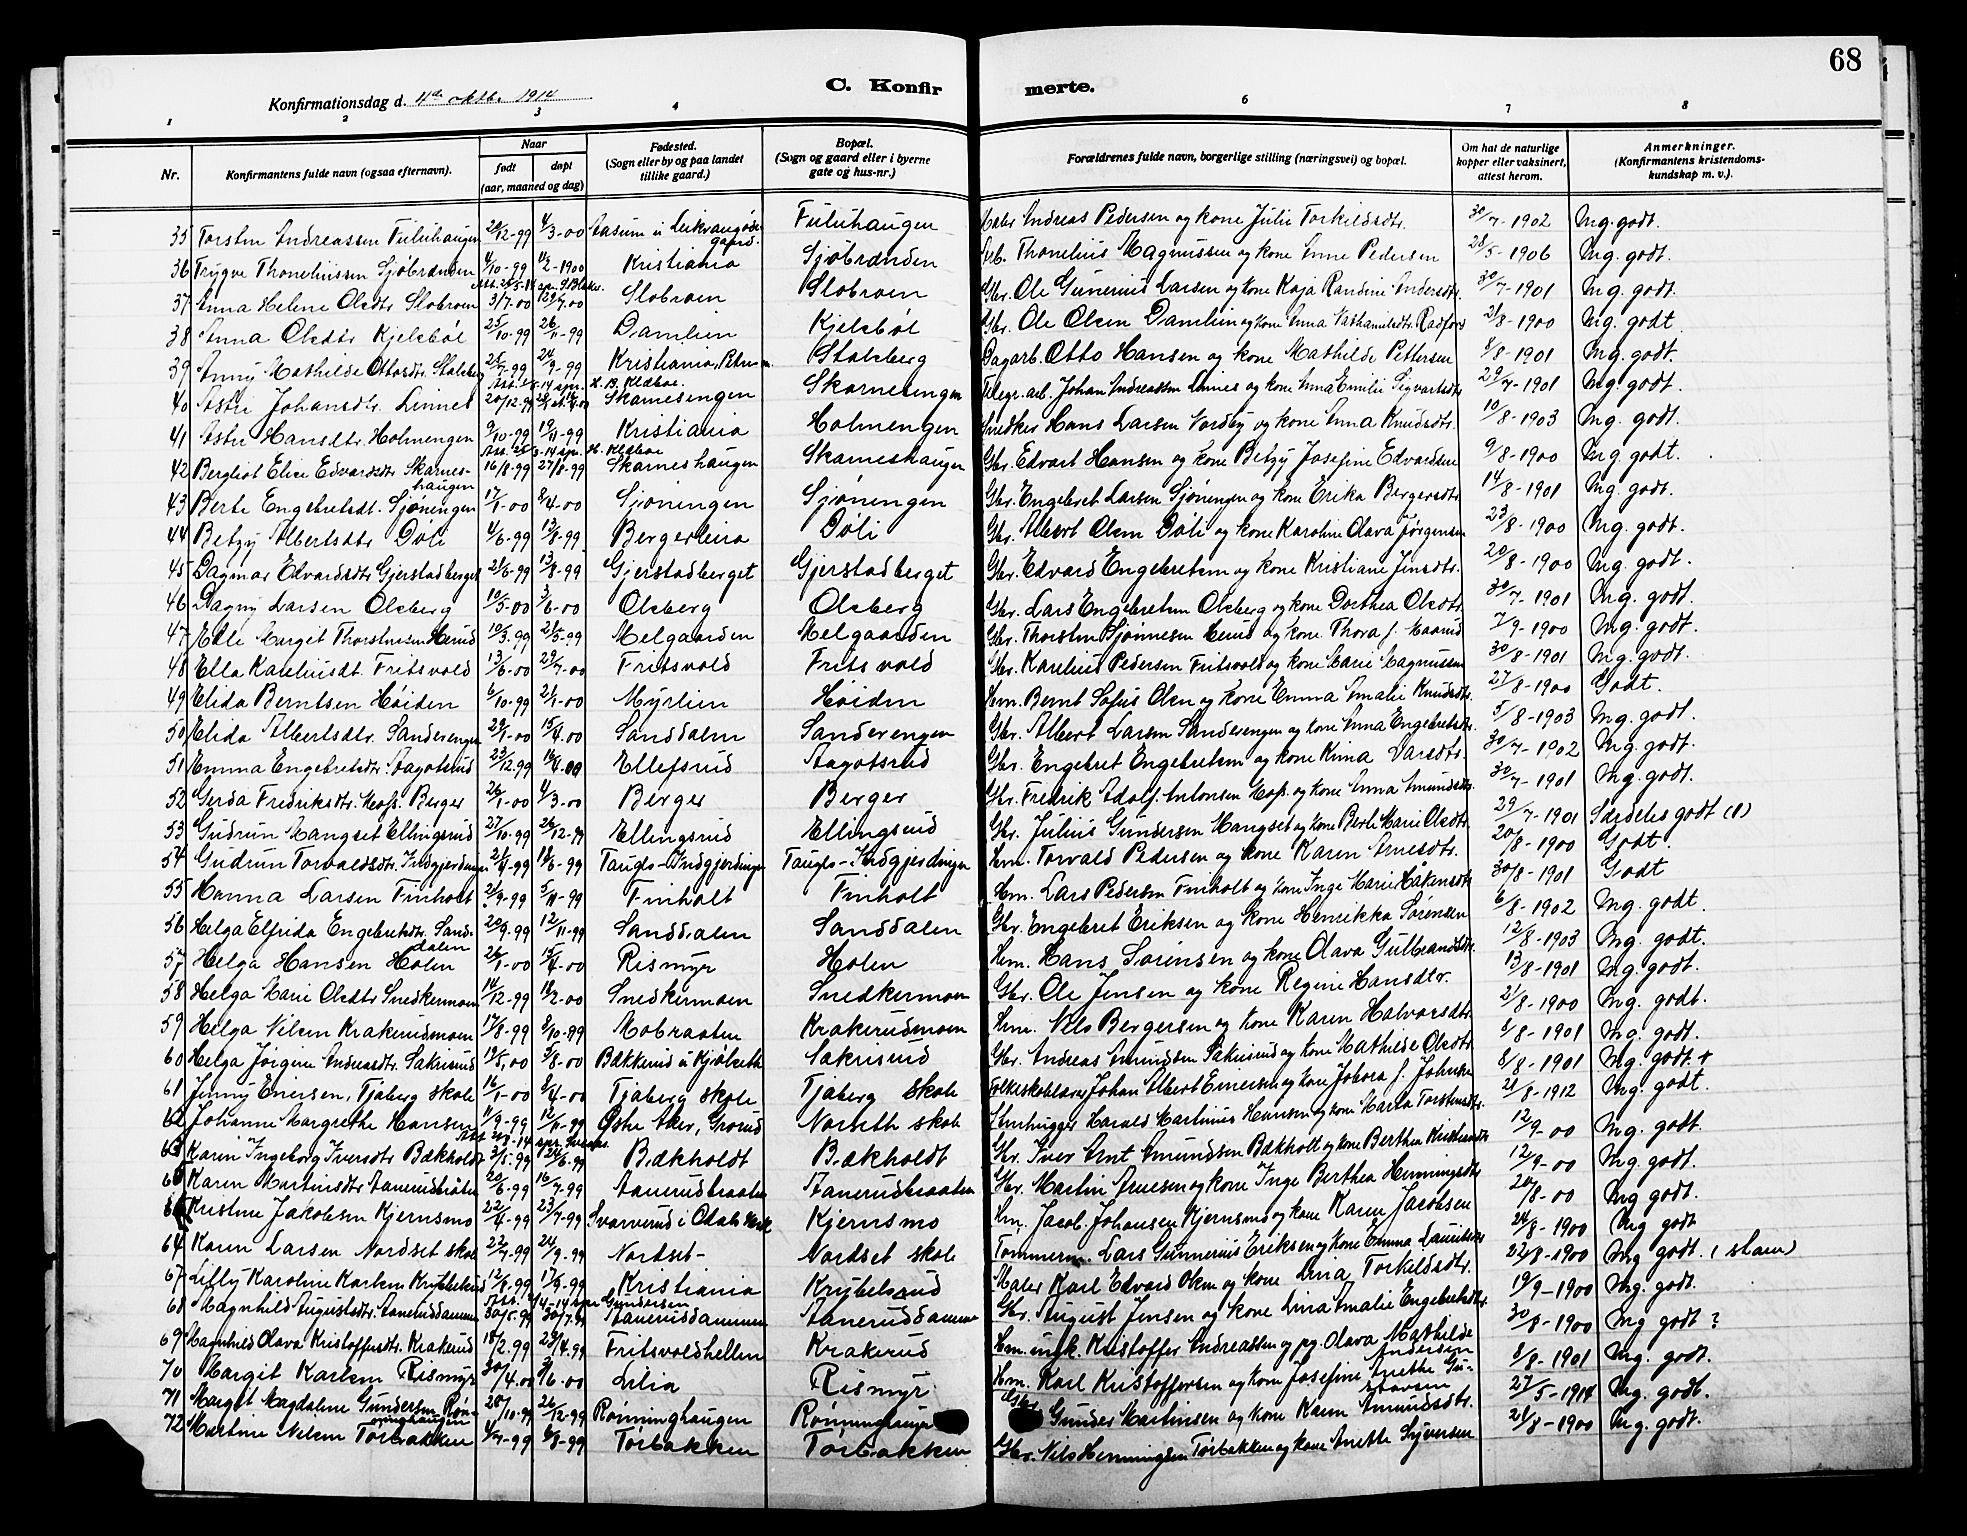 68
C. Konfirmerte.
Konfirmationsdag d. 4de oktbr. 1914
1 2 3 4 6 7 8
Nr. Konfirmantens fulde navn (ogsaa efternavn). Naar født døpt (aar, maaned og dag) Fødested. (Sogn eller by og paa landet tillike gaard.) Bopæl. (Sogn og gaard eller i byerne gate og hus-nr.) Forældrenes fulde navn, borgerlige stilling (næringsvei) og bopæl. Om hat de naturlige kopper eller vaksinert, attest herom. Anmerkninger. (Konfirmantens kristendomskundskap m. v.).
35 Torsten Andreassen Fuluhaugen 4/3-00 Fuluhaugen Andreas Pedersen og kone Julie Torkildsdtr. 30/7-1902 Mg. godt.
36 Trygve Thoneliussen Sjøbrænden 4/10-99 Kristiania Sjøbrænden Arb. Thonelius Magnussen og kone Anne Pedersen 28/5-1906 Mg. godt.
37 Anna Helene Olsdtr. Slobroen 3/7.00 Slobroen Slobroen Gbr. Ole Gunerius Larsen og kone Kaja Randine Andersdtr. 30/7-1901 Mg. godt.
38 Anna Olsdtr Kjelsbøl 25/10-99 26/11-99 Damlien Kjelsbøl Gbr. Ole Olsen Damlien og kone Anna 21/8-1900 Mg. godt.
39 Anny Mathilde Ottosdtr. Stalsberg 24/9-99 Kristiania, Stalsberg Dagarb. Otto Hansen og kone Mathilde Pettersen 8/8-1901 Mg. godt.
40 Astri Johansdtr. Linnes 20/12-99 Skarnesengen Skarnesengen Telegr. arb. Johan Andreassen Linnes og kone Anna Emilie Sigvartsdtr 29/7-1901 Mg. godt.
41 Astri Hansdtr. Holmengen 9/10-99 19/11-99 Kristiania Holmengen Snedker Hans Larsen Nordby og kone Anna Knudsdtr. 10/8-1903 Mg. godt.
42 Bergliot Elise Edvardsdtr Skarneshaugen 16/8.99 27/8.99 Skarneshaugen Skarneshaugen Gbr. Edvart Hansen og kone Betzy Josefine Edvardsen 9/8-1900 Mg. godt.
43 Berte Engebretsdt. Sjøningen 17/1-00 8/4-00 Sjøningen Sjøningen Gbr. Engebret Larsen Sjøningen og kone Erika Bergersdtr. 14/8-1901 Mg. godt.
44 Betzy Albertsdtr Døli 4/6-99 13/8-99 Bergerleira Døli Gbr. Albert Olsen Døli og kone Karoline Olava Jørgensen 23/8-1900 Mg. godt.
45 Dagmar Edvardsdtr Gjerstadberget 21/6-99 13/8-99 Gjerstadberget Gjerstadberget Gbr. Edvard Engebretsen og kone Kristiane Jensdtr. 20/8-1900 Mg. godt.
46 Dagny Larsen Olsberg 10/5-00 3/6-00 Olsberg Olsberg Gbr. Lars Engebretsen Olsberg og kone Dorthea Olsdtr. 30/7-1901 Mg. godt.
47 Elle Margit Thorstensen Herud 10/3.99 21/5-99 Melgaarden Melgaarden Gbr. Thorsten Herud og kone Thora J. Maarud 7/9-1900 Mg. godt.
48 Ella Kareliusdt. Fritsvold 13/6-00 29/7-00 Fritsvold Fritsvold Gbr. Karelius Pedersen Fritsvold og kone Marie Magnussen 30/8-1901 Mg. godt.
49 Elida Berntsen Høiden 6/10-99 21/1-00 Myrlien Høiden Hm. Bernt Sofus Olsen og kone Emma Amalie Knudsdtr. 27/8-1900 Godt.
50 Elida Albertsdtr. Sanderengen 29/1-00 15/4.00 Sanddalen Sanderengen Gbr. Albert Larsen Sanderengen og kone Anna Engebretsdtr 5/8-1903 Mg. godt.
51 Emma Engebretsdtr. Aagotsrud 23/12.99 16/4.00 Ellefsrud Aagotsrud Gbr. Engebret Engebretsen og kone Larsdtr. 30/7-1902 Mg. godt.
52 Gerda Fredriksdtr. Moss. Berger 26/1-00 4/3-00 Berger Berger Gbr. Fredrik Adolf Antonsen Moss. og kone Anna Amundsdtr 30/7-1901 Mg. godt.
53 Gudrun Mangset Ellingsrud 27/10-99 26/12-99 Ellingsrud Ellingsrud Gbr. Julius Gundersen Mangset og kone Berte Marie Olsdtr. 29/7-1901 Særdeles godt (1)
54 Gudrun Torvaldsdtr. 21/4-99 18/6-99 Taugls-Indgjerdingen Taugls-Indgjerdingen Hm. Torvald Pedersen og kone Karen Arnesdtr. 20/8-1900 Godt.
55 Hanna Larsen Finholt 21/9-99 5/11-99 Finholt Finholt Hm. Lars Pedersen Finholt og kone Inge Marie Håkensdtr 30/8-1901 Godt
56 Helga Elfrida Engebretsdtr. Sanddalen 20/9.99 12/11-99 Sanddalen Sanddalen Gbr. Engebret Eriksen og kone Henrikke Sørensen 6/8-1902 Mg. godt.
57 Helga Hansen Holen 26/1-00 15/4-00 Rismyr Holen Hm. Hans Sørensen og kone Olava Gulbrandsdtr. 12/8-1903 Mg. godt.
58 Helga Marie Olsdtr Snedkermoen 14/12-99 18/2-00 Snedkermoen Snedkermoen Gbr. Ole Jensen og kone Regine Hansdtr. 13/8-1901 Mg. godt.
59 Helga Nilsen Krakerudmoen 17/8-99 8/10-99 Mobraaten Krakerudmoen Hm. Nils Bergersen og kone Karen Halvorsdtr 21/8-1900 Mg. godt.
60 Helga Jørgine Andreasdtr. Sakrisrud 19/5.00 5/8-00 Bækkerud u Kjølseth Sakrisrud Gbr. Andreas Amundsen Sakrisrud og kone Mathilde Olsdtr. 8/8-1901 Mg. godt.
61 Jenny Einersen, Tjaberg skole 16/1-00 8/4-00 Tjaberg skole Tjaberg skole Johan Albert Einersen og kone J. Johnsen 8/8-1901 Mg. godt +
62 Johanne Margrethe Hansen 11/9-99 12/11-99 Østre Aker, Grorud Norseth skole Stenhugger Harald Martinus Hansen og kone Marta Torstensdtr. 21/8-1912 Mg. godt.
63 Karen Ingeborg Iversdtr Bækholdt 21/5.99 Bækholdt Bækholdt Gbr. Iver Arnt Amundsen Bækholt og kone Berthea 12/9-00 Mg. godt.
Karen Martinsdtr Aanerudbråten 20/6-99 16/7-99 Aanerudbraaten Aanerudbraaten Gbr. Martin Arnesen og kone Inge Berthea Henningsdtr 12/9-00 Mg. godt.
Kristine Jakobsen Kjernsmo 22/4-99 23/7-99 Svarverud i Odals Verk Kjernsmo Hm. Jacob Johansen Kjernsmo og kone Karen Jacobsen 20/8-00 Mg. godt.
64 Karen Larsen Nordset skole 23/7-99 24/9-99 Nordset- Nordset skole Lars Gunnerius Eriksen og kone Emma 24/8-1900 Mg godt
67 Lilly Karoline Karlsen Krybelsrud 17/6-99 Kristiania Krybelsrud Maler Karl Edvard Olsen og kone Lina Torkildsdtr. 22/8-1900 Mg godt. (stam)
68 Magnhild Augustsdtr. Aaneruddammen 30/5.99 30/7.99 Aaneruddammen Aaneruddammen Gbr. August Jensen og kone Lina Amalie Engebretsdtr. 19/9-1900 Mg. godt.
69 Magnhild Olava Kristoffersdtr. Krakerud 18/2.99 23/4.99 Fritsvoldhellen Krakerud Hm. Kristoffer Andreassen og Olava Mathilde Andersen 30/8-1900 Mg godt ?
70 Margit Karlsen Rismyr 30/4.00 3/6-00 Lilia Rismyr Hm. Karl Kristoffersen og kone Josefine Anette Gustavsen 8/8-1901 Mg. godt.
71 Margit Magdalene Gundersen Rønninghaugen 28/10-99 26/12-99 Rønninghaugen Gunder Martinsen og kone Karen Amundsdtr. 27/5-1914 Mg. godt.
72 Martine Nilsen Torbakken 4/7-99 6/8-99 Torbakken Torbakken Gbr. Nils Henningsen Torbakken og kone Anette Syversen 21/8-1900 Mg. godt.